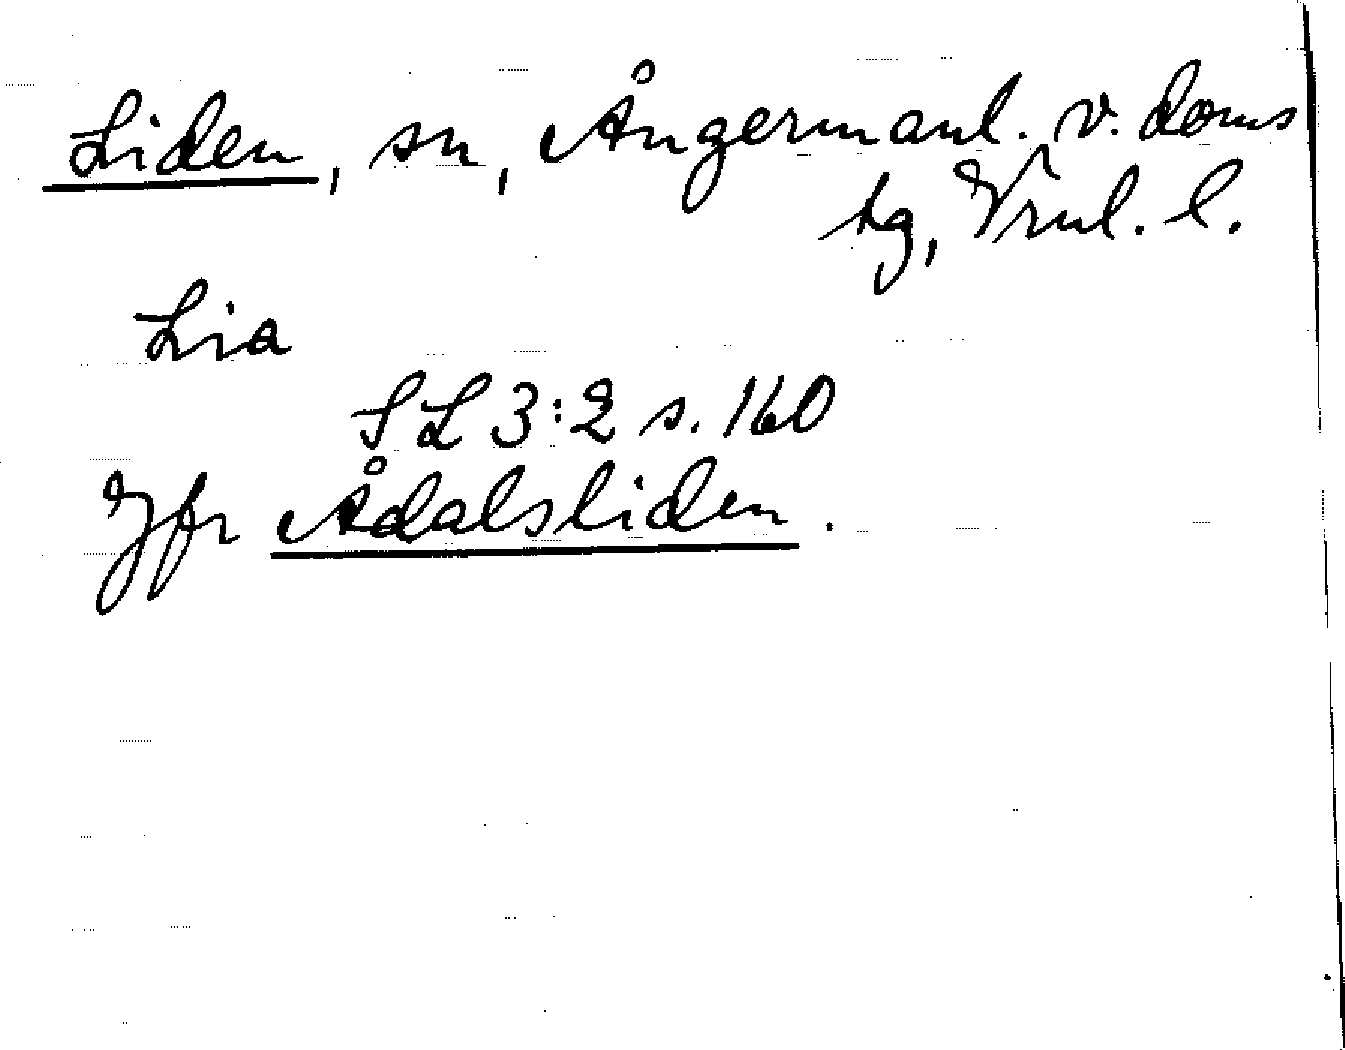 Liden, sn, Ångermanl. v. doms
tg, Vrnl. l.
Lia
SL 3:2 s. 160
Jfr Ådalsliden.